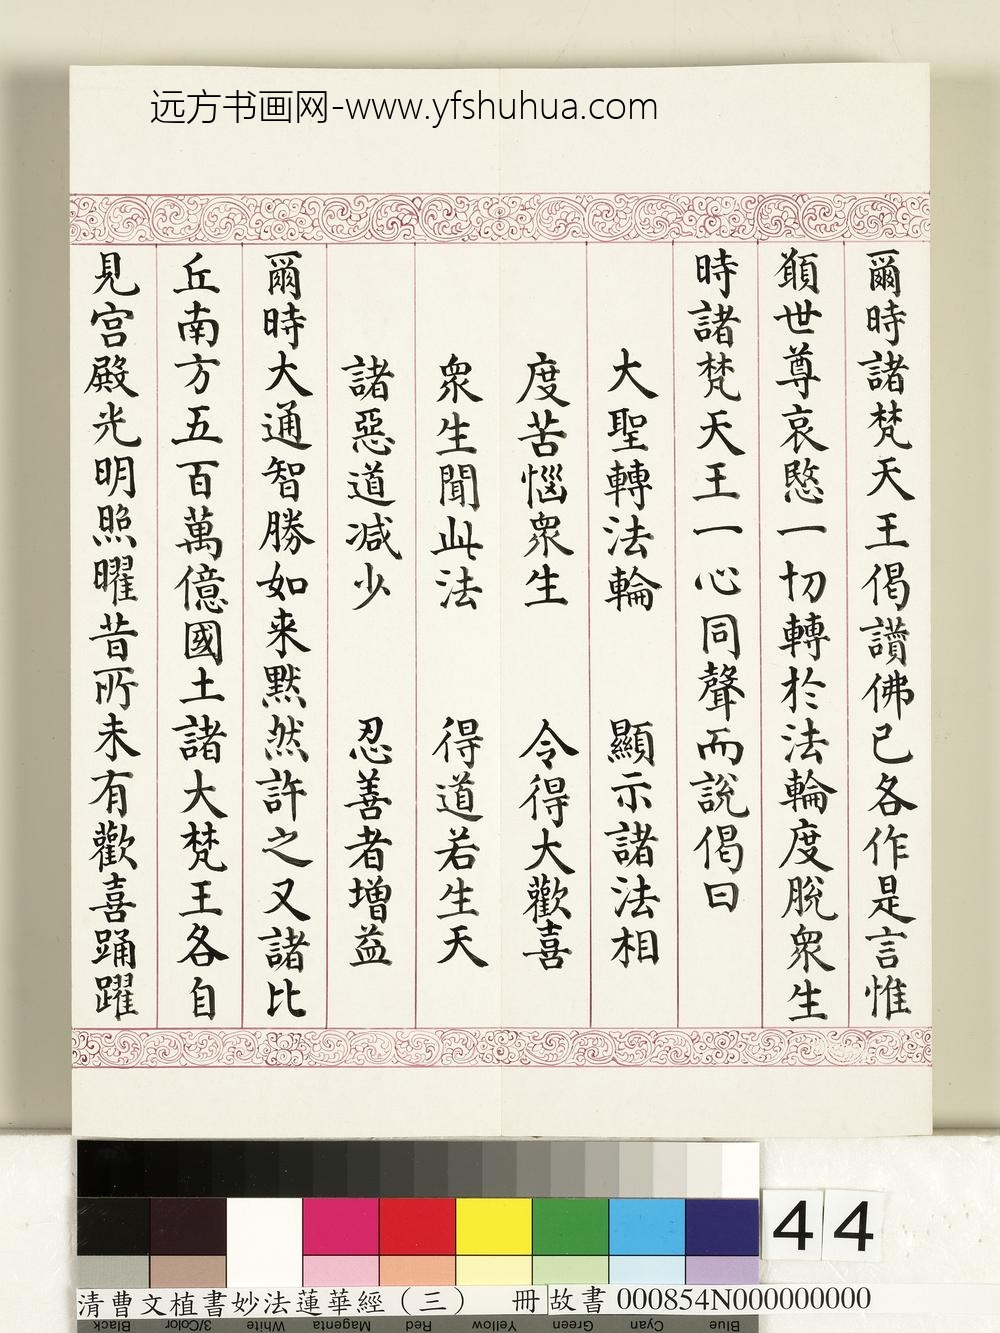 远方书画网-www.yfshuhua.com
爾時諸梵天王偈讚佛已各作是言惟
願世尊哀愍一切轉於法輪度脫衆生
時諸梵天王一心同聲而說偈曰
大聖轉法輪 顯示諸法相
度苦惱衆生 令得大歡喜
衆生聞此法 得道若生天
諸惡道减少 忍善者增益
爾時大通智勝如来黙然許之又諸比
丘南方五百萬億國土諸大梵王各自
見宮殿光明照曜昔所未有歡喜踊躍
44
清曹文植書妙法蓮華經(三) 冊 故書 000854N000000000
Black 3/Color White Magenta Red Yellow Green Cyan Blue